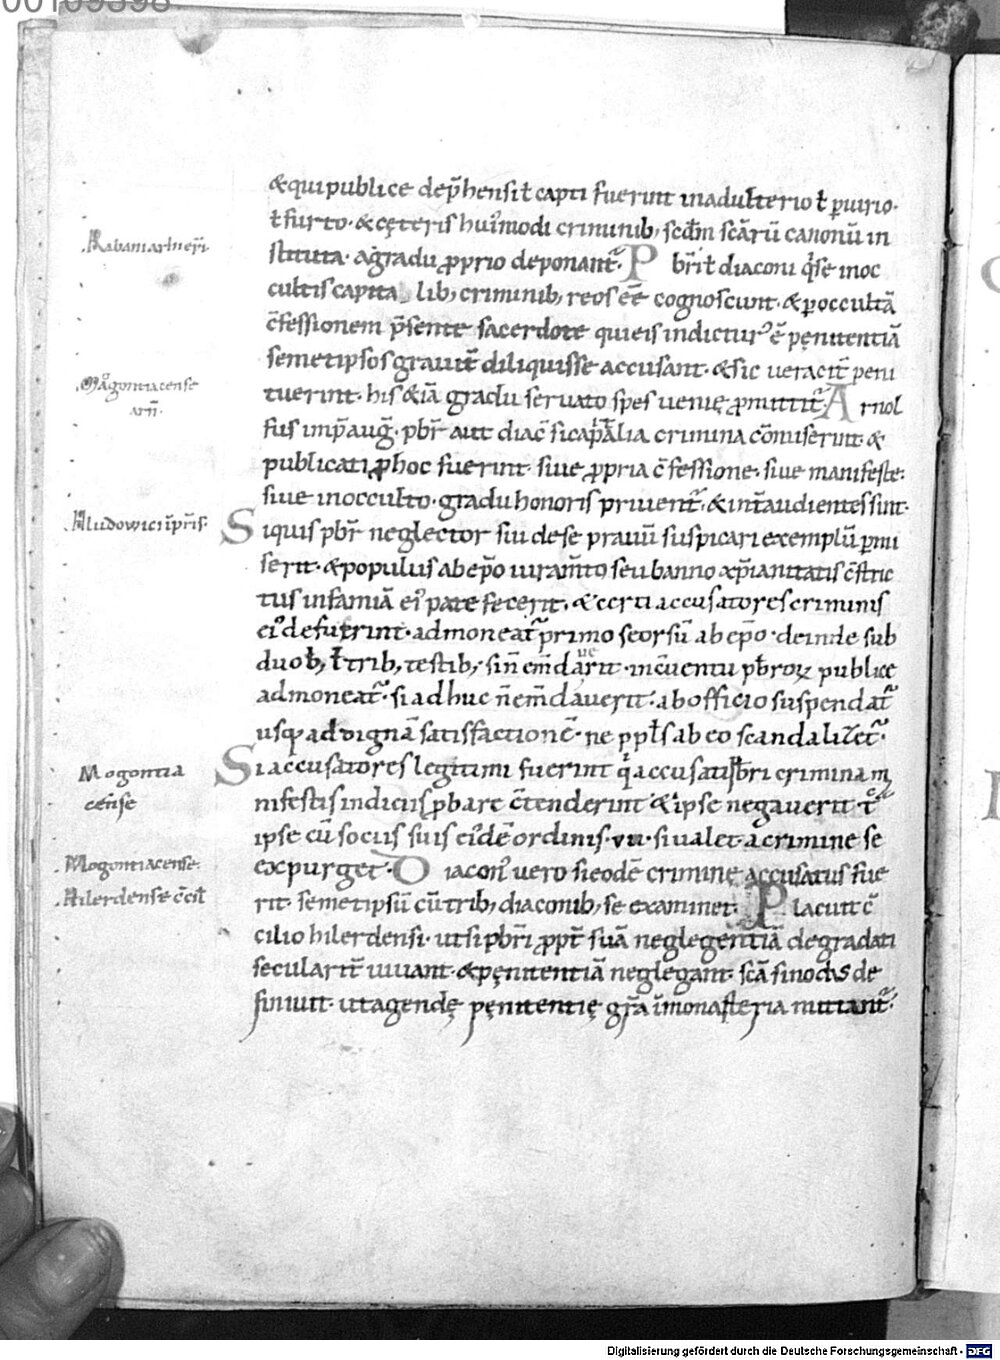 00109398
& qui publice dep̄hensi ł capti fuerint in adulterio ł ꝑiurio·
Rabani artineri· ł furto· & cęteris hui᾽modi criminib; scd̄m scārū canonū in
stituta· a gradu ꝓprio deponant᷑· P br̄i ł diaconi q̄ se in oc
cultis capita lib; criminib; reos eē cognoscunt· & ꝑ occultā
c̄fessionem p̄sente sacerdote qui eis indictur᾽ ē pęnitentiā
semetipsos grauit̄ diliquisse accusant· & sic ueracit̄ peni
Magontiacense arn̄· tuerint· his & iā gradu seruato spes uenię ꝓmittit᷑· A rnol
fus imp̄ aug̃· pbr̄ aut diac̄ si cap̄alia crimina cōmiserint· &
publicati ꝓ hoc fuerint· siue ꝓpria c̄fessione· siue manifeste·
siue in occulto· gradu honoris priuent᷑· & int̄ audientes sint·
Hludowici īp̄ris· S iquis pbr̄ neglector siu de se prauū suspicari exemplū ꝑmi
serit· & populus ab ep̄o iuram̄to seu banno xp̄ianitatis c̄stric
tus infamiā ei᾽ patefecerit· & certi accusatores criminis
ei᾽ defuerint· admoneat᷑ primo seorsū ab ep̄o· deinde sub
duob; ł trib; testib; sin̄ em̄dauerit· in c̄uentu pbr̄oꝝ publice
admoneat᷑· si adhuc n̄ em̄dauerit· ab officio suspendat᷑
usq; ad dignā satisfactionē· ne pp̄ls ab eo scandalizet᷑·
Mogontia cēnse S i accusatores legitimi fuerint q̄ accusati pbr̄i crimina m
nifestis indiciis ꝓbare c̄tenderint & ipse negauerit tc̄
ipse cū sociis suis ei᾽dē ordinis· vii· si ualet· a crimine se
Mogontiacense· expurget· D iacon᾽ uero si eodē crimine accusatus fue
Hilerdense c̄cil̄ rit· semetipsū cū trib; diaconib; se examinet· P lacuit c̄
cilio hilerdensi· ut si pbr̄i ꝓpt̄ suā neglegentiā degradati
secularit̄ uiuant· & pęnitentiā neglegant· scā sinodus de
finiuit· ut agendę pęnitentię gr̄a ī monasteria mittant᷑·
Digitalisierung gefördert durch die Deutsche Forschungsgemeinschaft - DFG